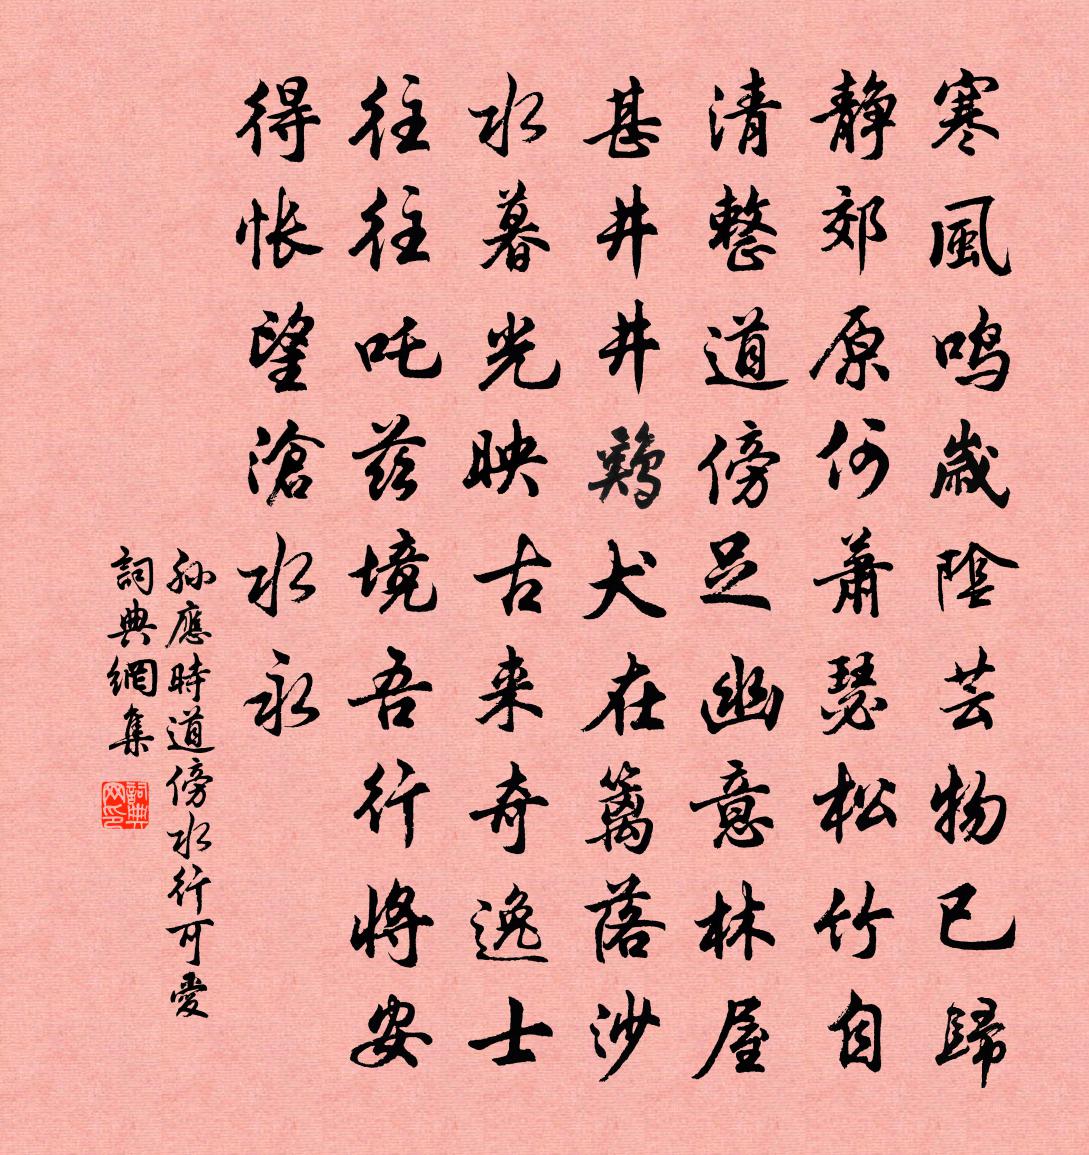 寒風鳴歲陰芸物已歸
靜郊原何蕭瑟松竹自
清整道傍足幽意林屋
甚井井鷄犬在籬落沙
水暮光映古来奇逸士
往往吒茲境吾行將安
得悵望滄水永
孙應時道傍水行可愛
詞典網集
詞典网印